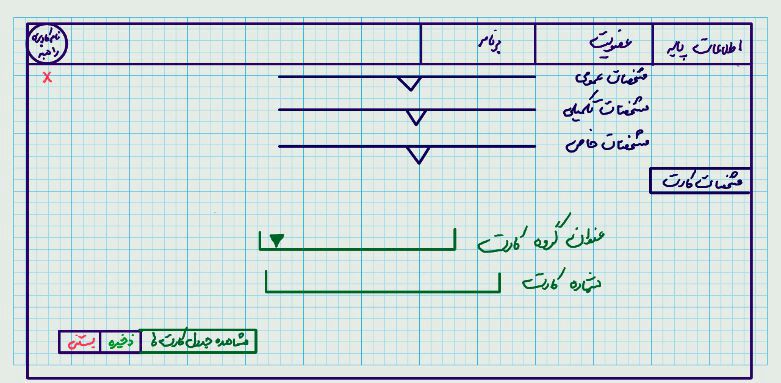 اطلاعات پایه
عضویت
برنامه
نام کاربری
راهبر
x
مشخصات عمومی
مشخصات تکمیلی
مشخصات خاص
مشخصات کارت
عنوان گروه کارت
شماره کارت
مشاهده جدول کارت ها
ذخیره
بستن